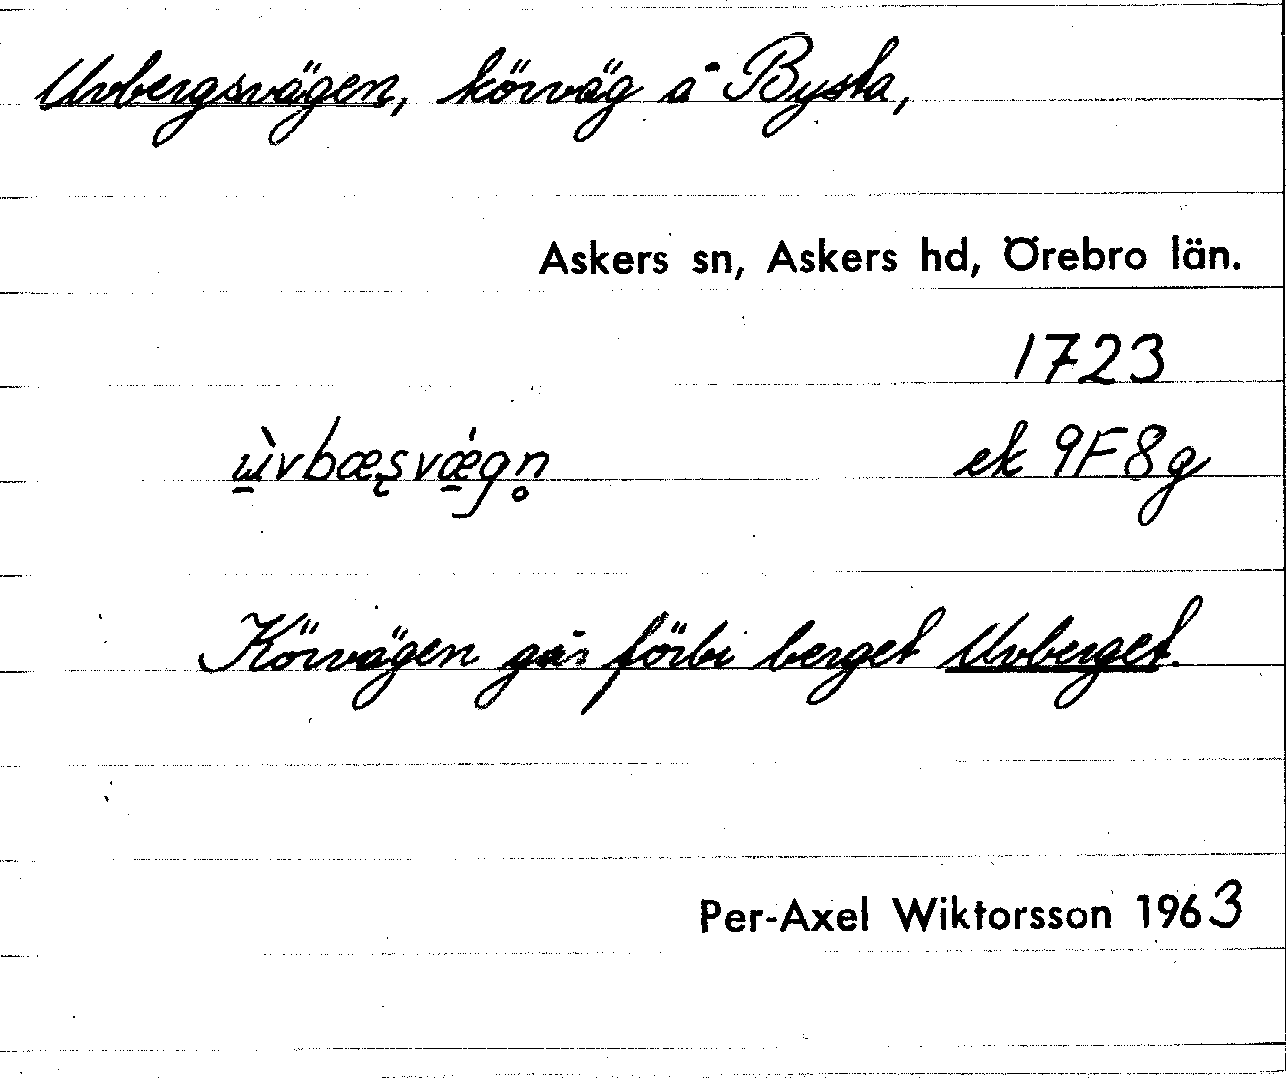 Uvbergsvägen, körväg å Bysta,
Askers sn, Askers hd, Örebro län.
1723
ek 9F8g
Körvägen går förbi berget Uvberget.
Per-Axel Wiktorsson 1963